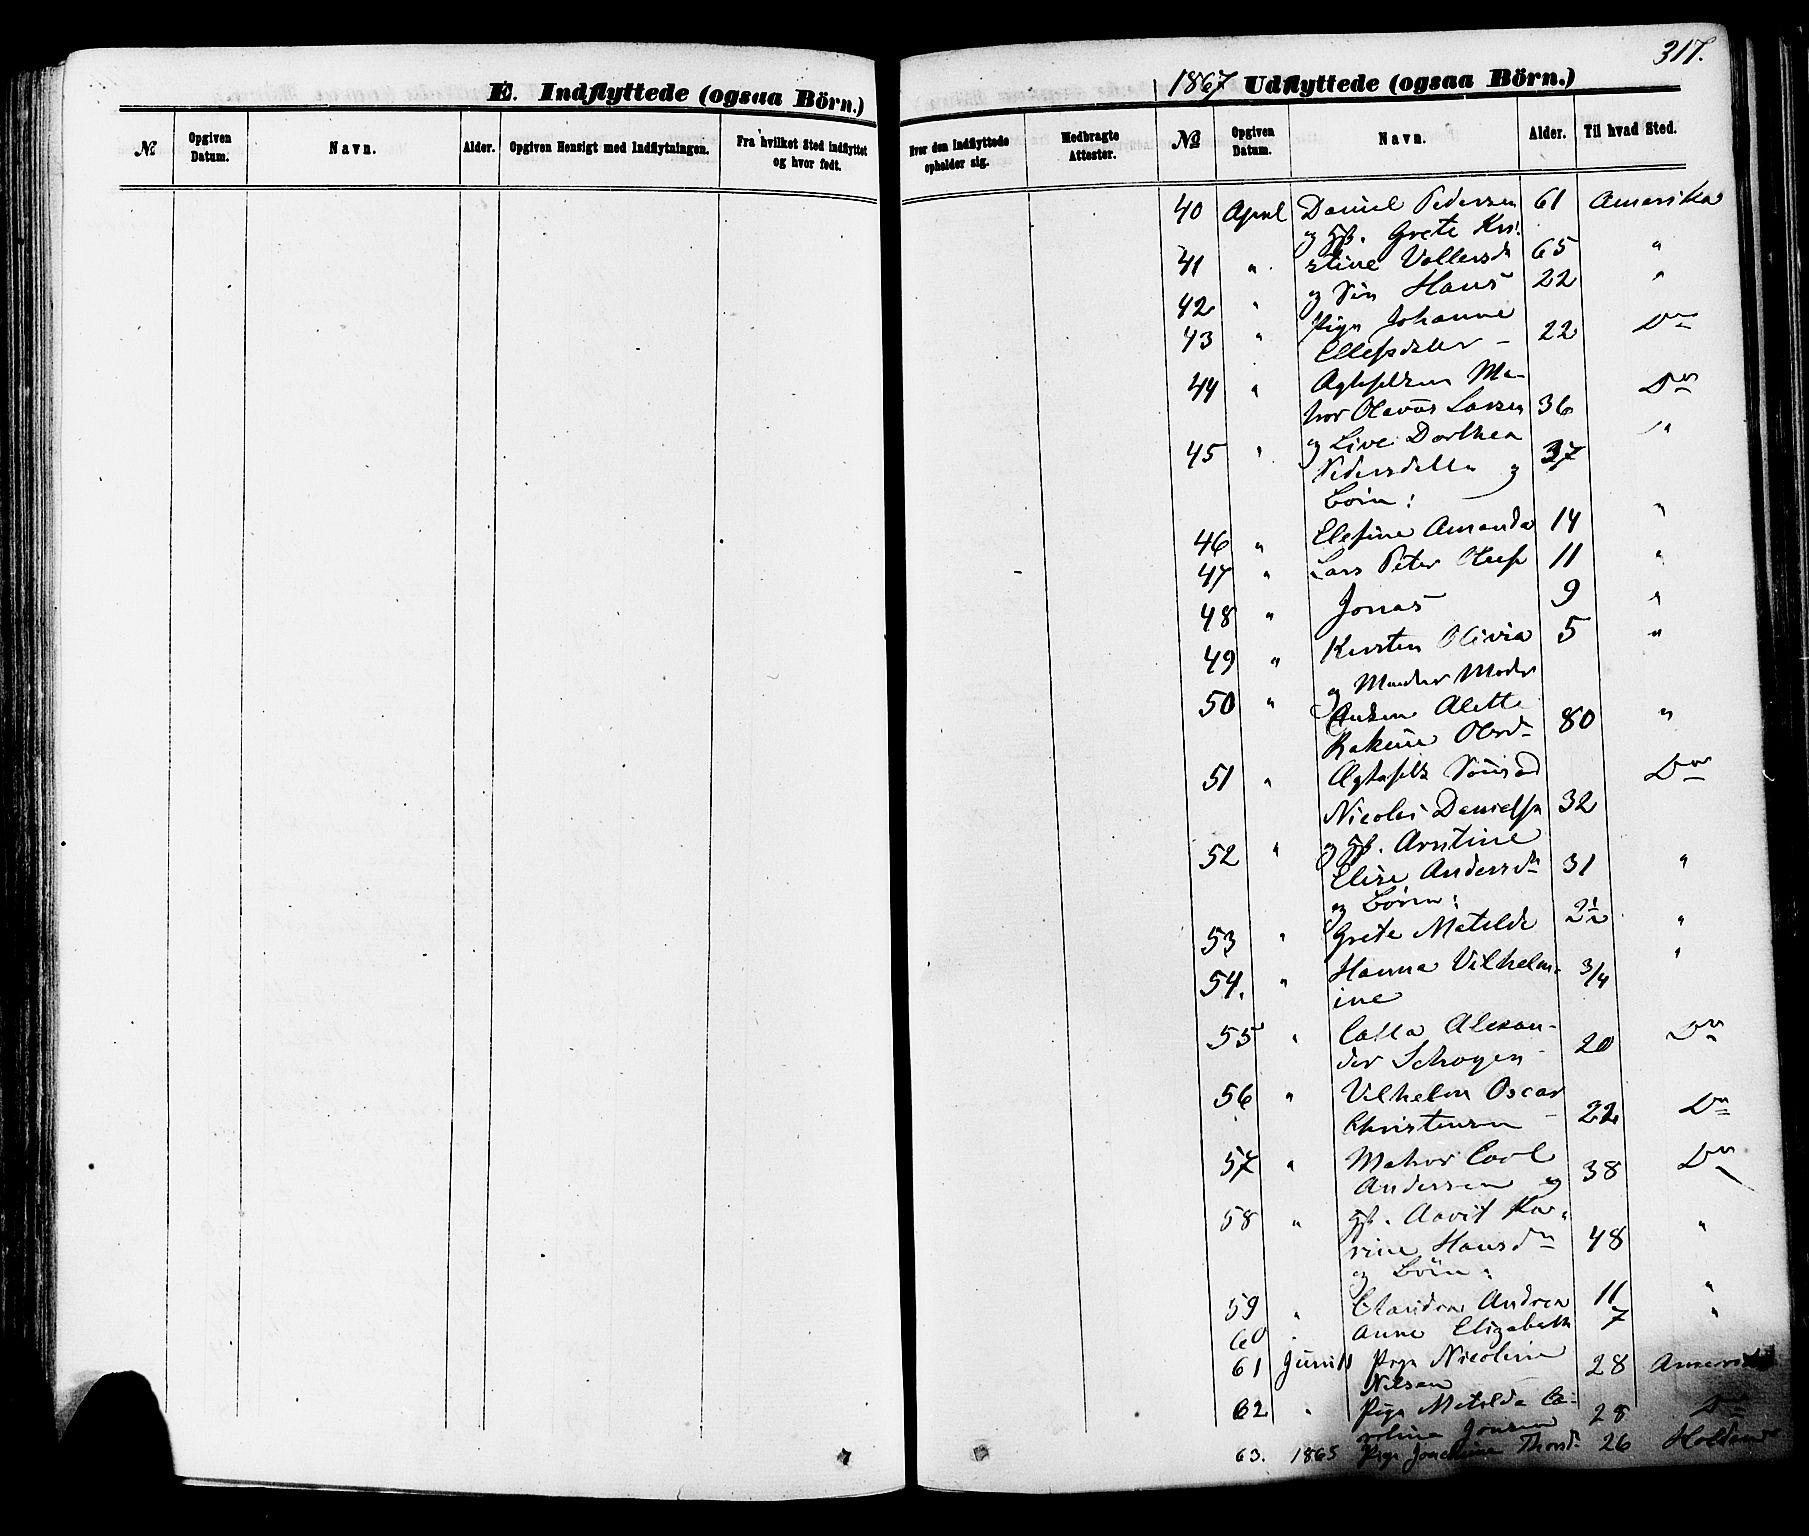 317.
E. Indflyttede (ogsaa Börn.)
1867 Udflyttede (ogsaa Börn.)
№ Opgiven Datum. Navn. Alder. Opgiven Hensigt med Indflytningen. Fra hvilket Sted indflyttet og hvor født.
Hvor den Indflyttede opholder sig. Medbragte Attester. № Opgiven Datum. Navn. Alder. Til hvad Sted.
40 April Daniel Pedersen 61 Amerika
og Grete Kri-
41 " stine Vollersd 65 "
42 " og Søn Hans 22 "
43 " Pige Johanne
Ellefsdatter - 22 Do
44 " Ma- Do
thor Olavus Larsen 36
45 " og Live Dorthea "
Pedersdatter og 37
Börn:
46 " Elefine Amanda 14 "
47 " Lars Peter 11 "
48 " Jonas 9 "
49 " Kirsten Olivia 5 "
50 " og Moder
Alette
Olsd- 80 "
51 " Do
Nicolai Danielsen 32
52 " og
Elise Andersd 31 "
og Börn:
53 " Grete Matilde 2½ "
54. " Hanna Vilhelm- 3/4 "
ine
55 " Alexan- Do
der 20
56 " Vilhelm Oscar
Christensen - 22 Do
57 " Mathor Carl Do
Andersen og 38
58 " Kar-
rine Hansd 48 "
og Börn:
59 " Andrea 11 "
60 " Anne Elizabeth 7 "
61 Juni Pige Nicoline 28 Amerika
Nilsen
62 " Pige Matilda Ca- 28 Do
rolina Jonsen
63. 1865 Pige Joachime Thorsd 26